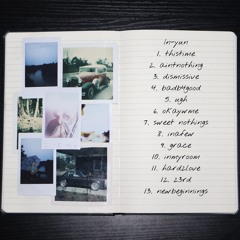 in-yun
1. thistime
2. aintnothing
3. dismissive
4. badb4good
5. ugh
6. okaywme
7. sweet nothings
8. inafew
9. grace
10. inmyroom
11. hard2love
12. 23rd
13. newbeginnings